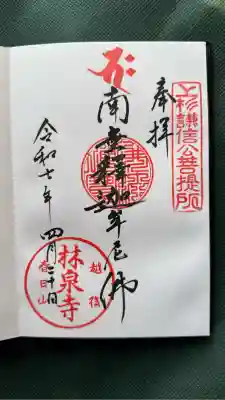 上杉謙信公菩提所
奉拝
南无釋迦牟尼佛
令和七年
四月二十日
越後
林泉寺
春日山